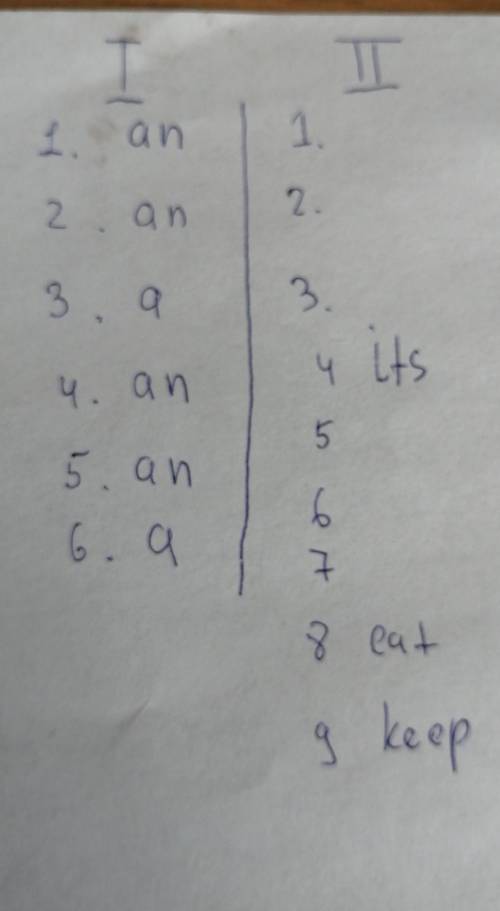 I
1. an
2. an
3. a
4. an
5. an
6. a
II
1.
2.
3.
4 its
5
6
7
8 eat
9 keep